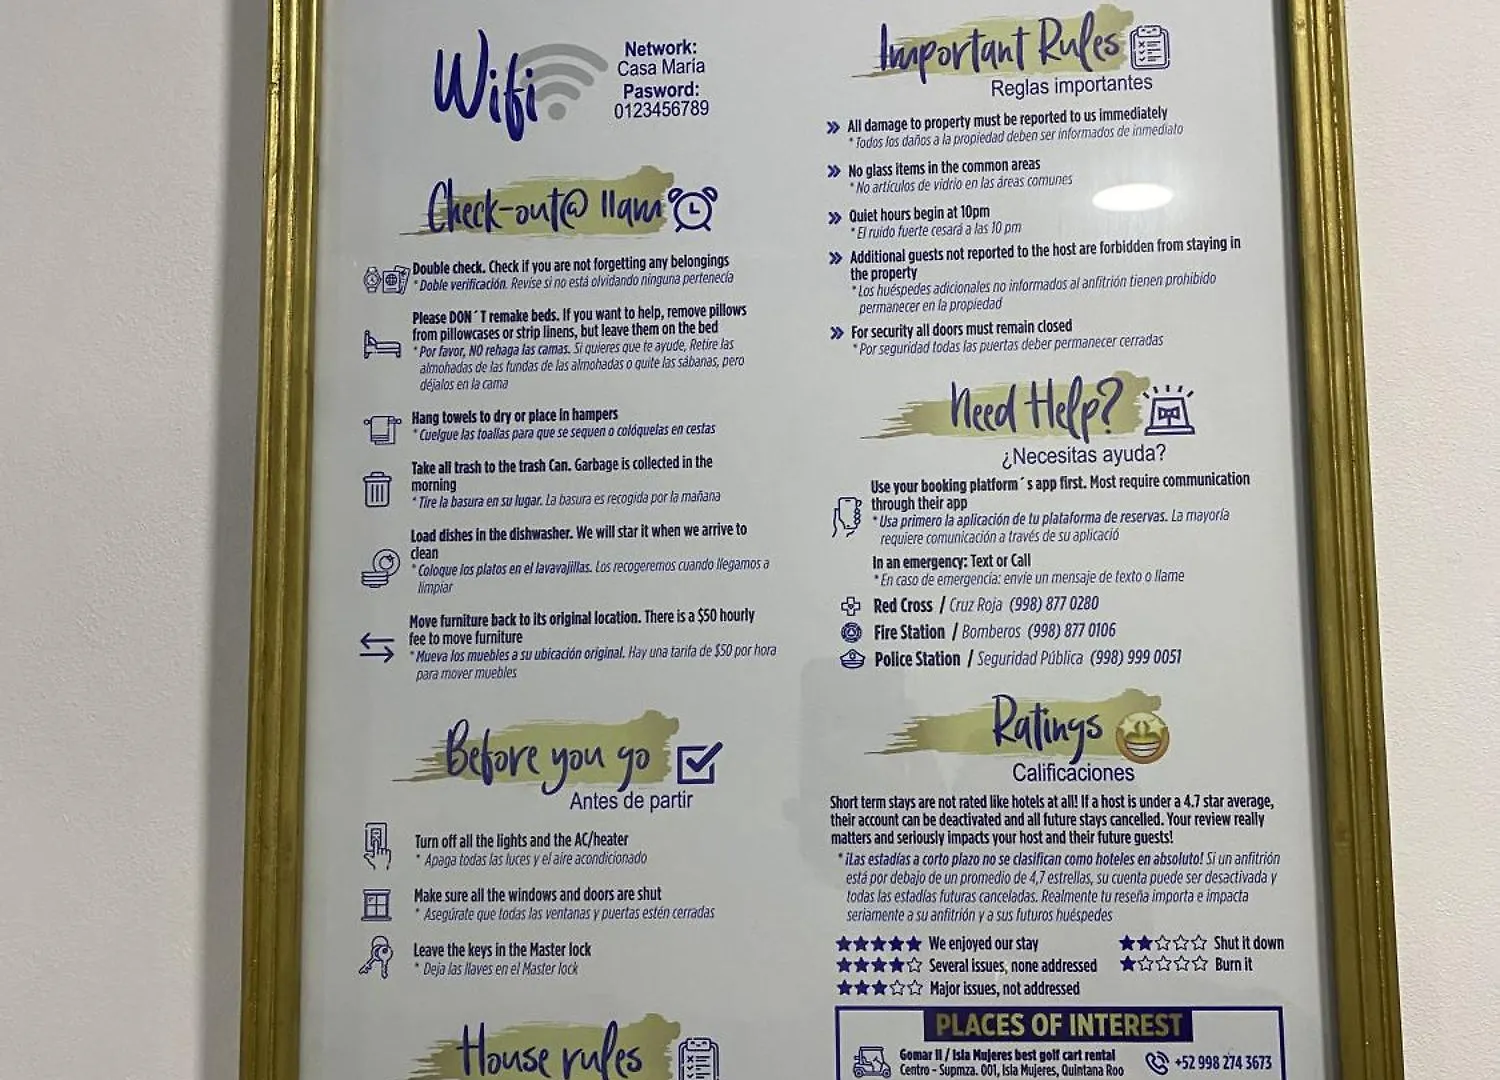 Wifi
Network:
Casa Maria
Pasword:
0123456789
Check-out@ 11am
Double check. Check if you are not forgetting any belongings
* Doble verificación. Revise si no está olvidando ninguna pertenecía
Please DON´T remake beds. If you want to help, remove pillows
from pillowcases or strip linens, but leave them on the bed
* Por favor, NO rehaga las camas. Si quieres que te ayude, Retire las
almohadas de las fundas de las almohadas o quite las sábanas, pero
déjalos en la cama
Hang towels to dry or place in hampers
* Cuelgue las toallas para que se sequen o colóquelas en cestas
Take all trash to the trash Can. Garbage is collected in the
morning
* Tire la basura en su lugar. La basura es recogida por la mañana
Load dishes in the dishwasher. We will star it when we arrive to
clean
* Coloque los platos en el lavavajillas. Los recogeremos cuando llegamos a
limpiar
Move furniture back to its original location. There is a $50 hourly
fee to move furniture
* Mueva los muebles a su ubicación original. Hay una tarifa de $50 por hora
para mover muebles
Before you go
Antes de partir
Turn off all the lights and the AC/heater
* Apaga todas las luces y el aire acondicionado
Make sure all the windows and doors are shut
* Asegúrate que todas las ventanas y puertas estén cerradas
Leave the keys in the Master lock
* Deja las llaves en el Master lock
House rules
Important Rules
Reglas importantes
All damage to property must be reported to us immediately
* Todos los daños a la propiedad deben ser informados de inmediato
No glass items in the common areas
* No artículos de vidrio en las áreas comunes
Quiet hours begin at 10pm
* El ruido fuerte cesará a las 10 pm
Additional guests not reported to the host are forbidden from staying in
the property
* Los huéspedes adicionales no informados al anfitrión tienen prohibido
permanecer en la propiedad
For security all doors must remain closed
* Por seguridad todas las puertas deber permanecer cerradas
Need Help?
¿Necesitas ayuda?
Use your booking platform´s app first. Most require communication
through their app
* Usa primero la aplicación de tu plataforma de reservas. La mayoría
requiere comunicación a través de su aplicació
In an emergency: Text or Call
* En caso de emergencia: envíe un mensaje de texto o llame
Red Cross / Cruz Roja (998) 877 0280
Fire Station / Bomberos (998) 877 0106
Police Station / Seguridad Pública (998) 999 0051
Ratings
Calificaciones
Short term stays are not rated like hotels at all! If a host is under a 4.7 star average,
their account can be deactivated and all future stays cancelled. Your review really
matters and seriously impacts your host and their future guests!
* ¡Las estadías a corto plazo no se clasifican como hoteles en absoluto! Si un anfitrión
está por debajo de un promedio de 4,7 estrellas, su cuenta puede ser desactivada y
todas las estadías futuras canceladas. Realmente tu reseña importa e impacta
seriamente a su anfitrión y a sus futuros huéspedes
★★★★★ We enjoyed our stay
★★★★☆ Several issues, none addressed
★★★☆☆ Major issues, not addressed
★★☆☆☆ Shut it down
★☆☆☆☆ Burn it
PLACES OF INTEREST
Gomar II / Isla Mujeres best golf cart rental
Centro - Supmza. 001, Isla Mujeres, Quintana Roo
+52 998 274 3673